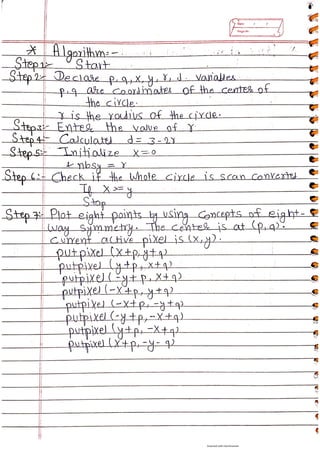 * Algorithm:-
Step 1:- Start
Step 2:- Declare p, q, x, y, r, d variables
p, q are coordinates of the center of
the circle.
r is the radius of the circle.
Step 3:- Enter the value of r
Step 4:- Calculated d = 3-2r
Step 5:- Initialize x=0
& nbsy = r
Step 6:- Check if the whole circle is scan converted
If x >= y
Stop
Step 7:- Plot eight points by using Concepts of eight-
way symmetry. The center is at (p, q).
Current active pixel is (x, y).
putpixel (x+p, y+q)
putpixel (y+p, x+q)
putpixel (-y+p, x+q)
putpixel (-x+p, y+q)
putpixel (-x+p, -y+q)
putpixel (-y+p, -x+q)
putpixel (y+p, -x+q)
putpixel (x+p, -y-q)